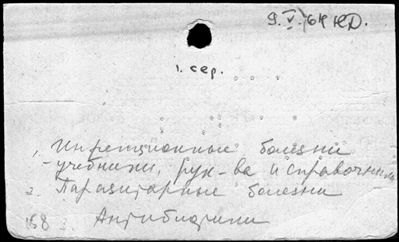 9.V.64 НД.
1. сер.
1. Инфекционные болезни
- учебники, рук-ва и справочники
2. Паразитарные болезни
168 3. Антибиотики